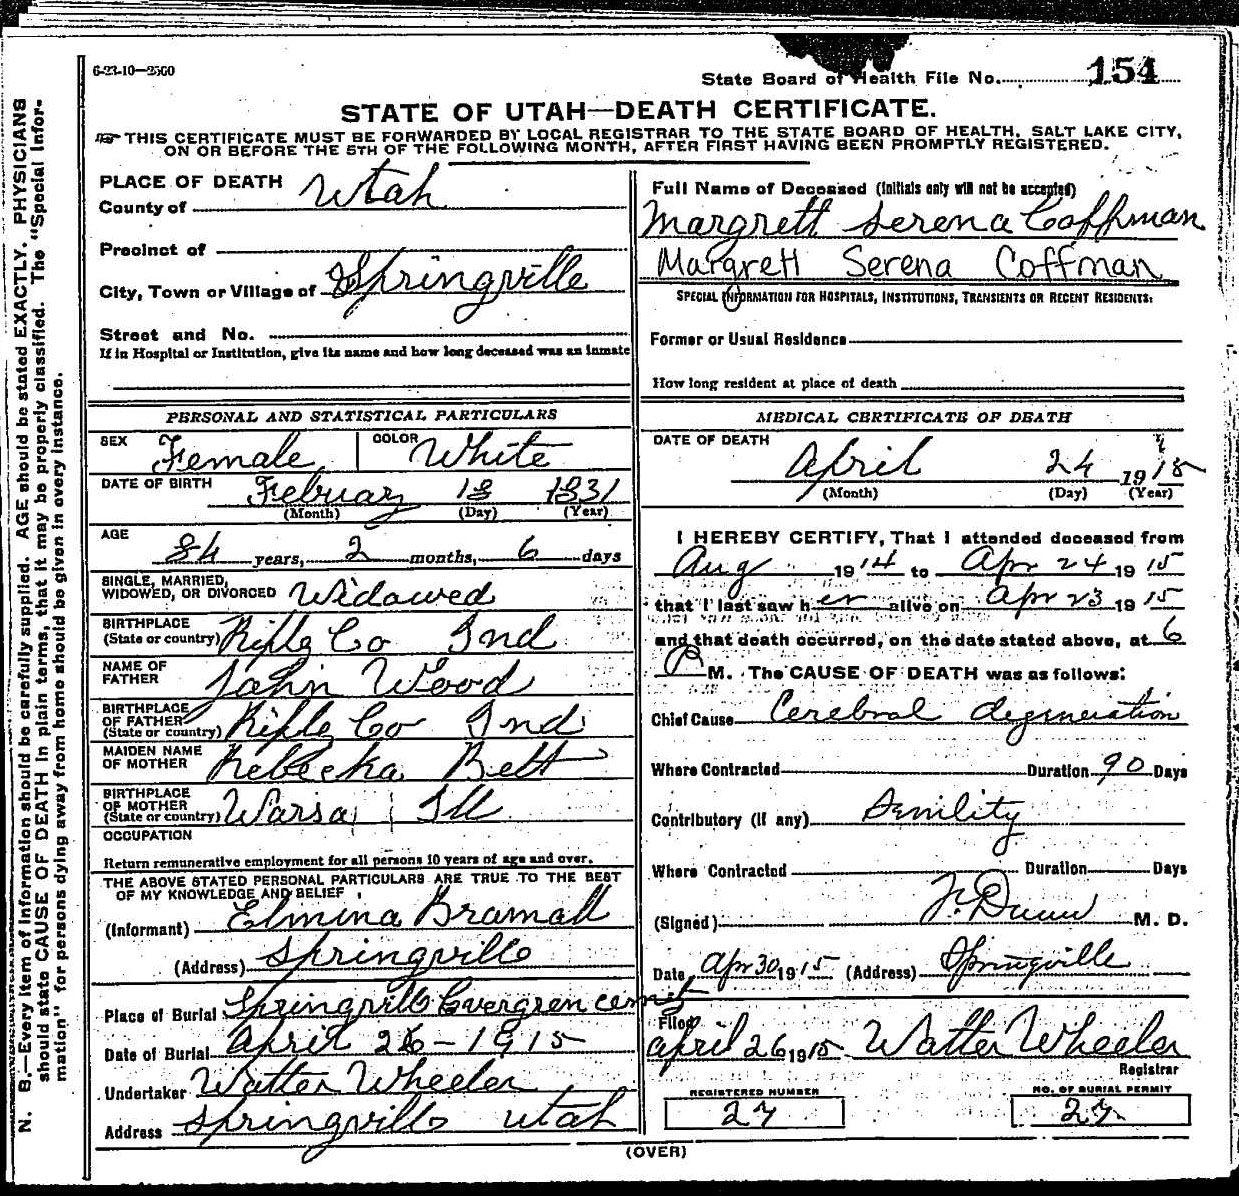 6-23-10—2500
State Board of Health File No. 154
STATE OF UTAH—DEATH CERTIFICATE.
THIS CERTIFICATE MUST BE FORWARDED BY LOCAL REGISTRAR TO THE STATE BOARD OF HEALTH, SALT LAKE CITY,
ON OR BEFORE THE 5TH OF THE FOLLOWING MONTH, AFTER FIRST HAVING BEEN PROMPTLY REGISTERED.
N. B.—Every item of information should be carefully supplied. AGE should be stated EXACTLY. PHYSICIANS
should state CAUSE OF DEATH in plain terms, that it may be properly classified. The "Special Infor-
mation" for persons dying away from home should be given in every instance.
PLACE OF DEATH
County of Utah
Precinct of
City, Town or Village of Springville
Street and No.
If in Hospital or Institution, give its name and how long deceased was an inmate
PERSONAL AND STATISTICAL PARTICULARS
SEX Female COLOR White
DATE OF BIRTH February 18 1831
(Month) (Day) (Year)
AGE 84 years, 2 months, 6 days
SINGLE, MARRIED,
WIDOWED, OR DIVORCED Widowed
BIRTHPLACE
(State or country) Rifle Co Ind
NAME OF
FATHER John Wood
BIRTHPLACE
OF FATHER
(State or country) Rifle Co Ind
MAIDEN NAME
OF MOTHER Rebecka Belt
BIRTHPLACE
OF MOTHER
(State or country) Warsa Ill
OCCUPATION
Return remunerative employment for all persons 10 years of age and over.
THE ABOVE STATED PERSONAL PARTICULARS ARE TRUE TO THE BEST
OF MY KNOWLEDGE AND BELIEF
(Informant) Elmina Bramall
(Address) Springville
Place of Burial Springvill Evergren cemet
Date of Burial April 26-1915
Undertaker Walter Wheeler
Address Springville Utah
Full Name of Deceased (Initials only will not be accepted)
Margrett Serena Coffman
Margrett Serena Coffman
SPECIAL INFORMATION FOR HOSPITALS, INSTITUTIONS, TRANSIENTS OR RECENT RESIDENTS:
Former or Usual Residence
How long resident at place of death
MEDICAL CERTIFICATE OF DEATH
DATE OF DEATH
April 24 1915
(Month) (Day) (Year)
I HEREBY CERTIFY, That I attended deceased from
Aug 1914 to Apr 24 1915
that I last saw her alive on Apr 23 1915
and that death occurred, on the date stated above, at 6
P M. The CAUSE OF DEATH was as follows:
Chief Cause Cerebral degeneration
Where Contracted Duration 90 Days
Contributory (if any) Senility
Where Contracted Duration Days
(Signed) F. Dunn M. D.
Date Apr 30 1915 (Address) Springville
Filed
April 26 1915 Walter Wheeler
Registrar
REGISTERED NUMBER
27
NO. OF BURIAL PERMIT
27
(OVER)